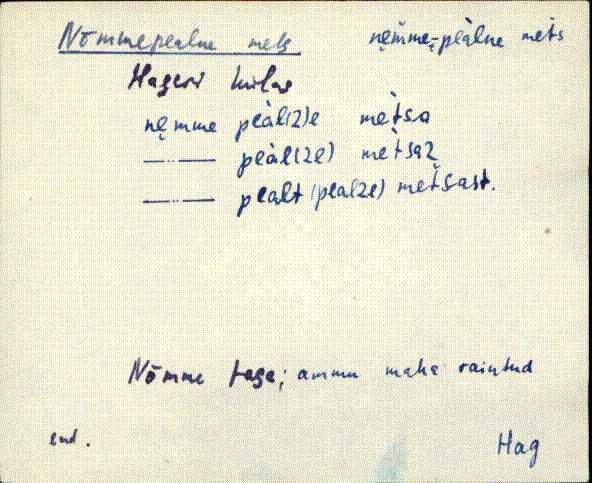 Nõmmepealne mets nẹm̀me-pèàlne mèts
Hageri külas
nẹmme pèàl(z)e mètsa
—..— pèàl(ze) mètsaz
—..— pealt (pealze) metsast.
Nõmme taga; ammu maha raiutud
end.
Hag